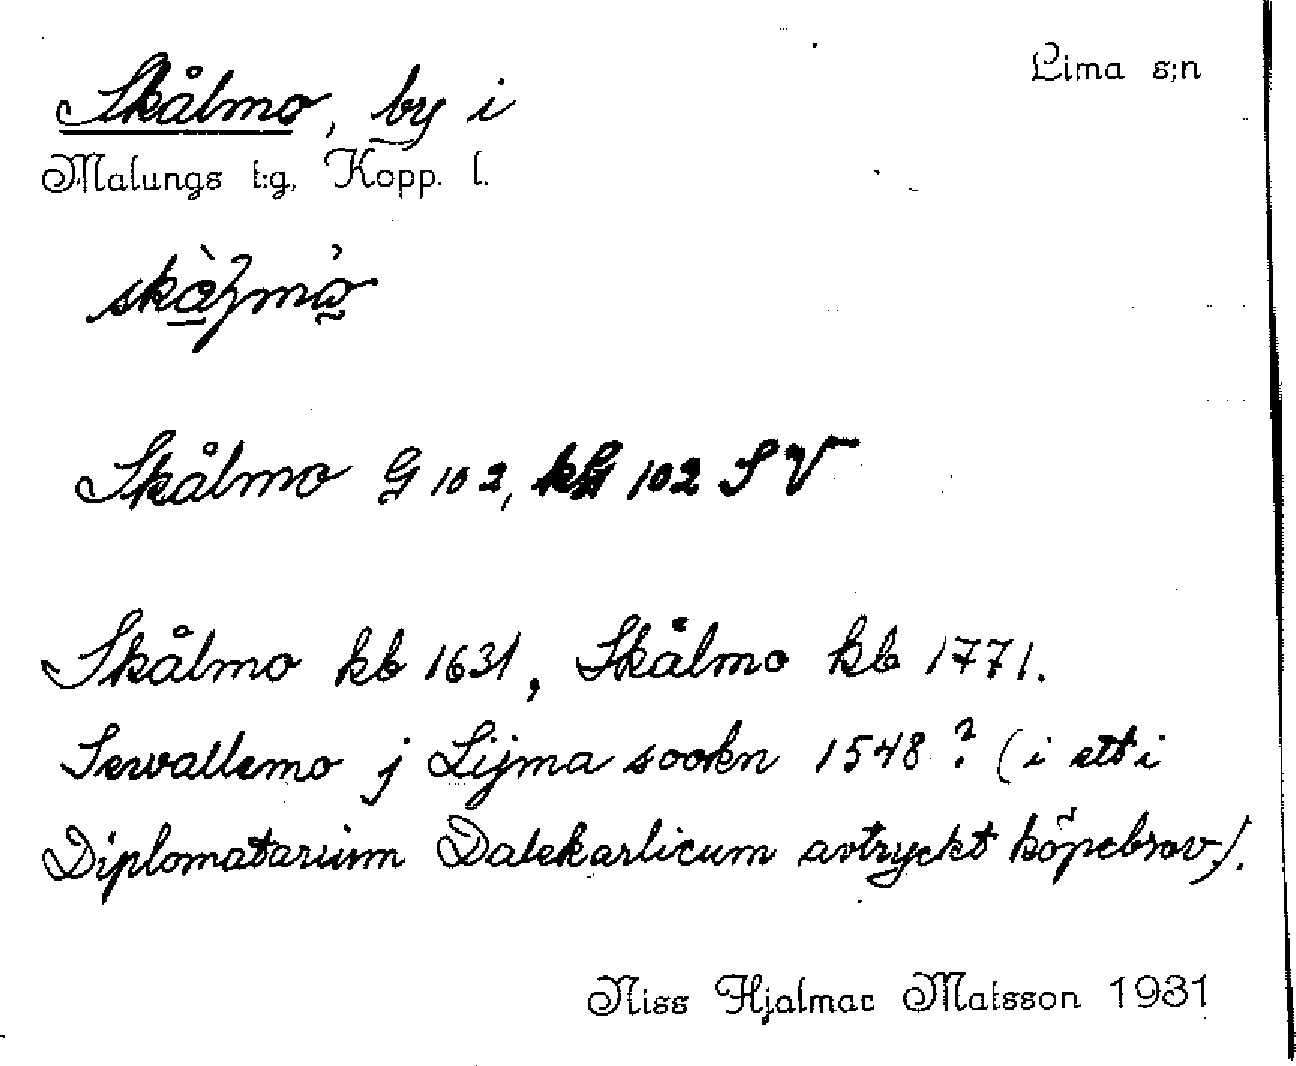 Skålmo, by i Lima s:n
Malungs t:g. Kopp. l.
Skålmo G 102, kG 102 S V
Skålmo kb 1631, Skålmo kb 1771.
Servallemo j Lijma sookn 1548? (i ett i
Diplomatarium Dalekarlicum avtryckt köpebrev).
Niss Hjalmar Matsson 1931